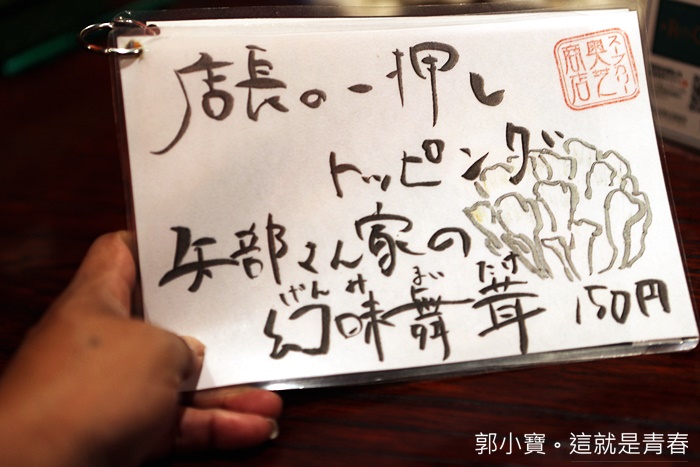 店長の一押し
トッピング
矢部さん家の
げんみ まい たけ
幻味舞茸 150円
スープカリー
奥芝
商店
郭小寶。這就是青春